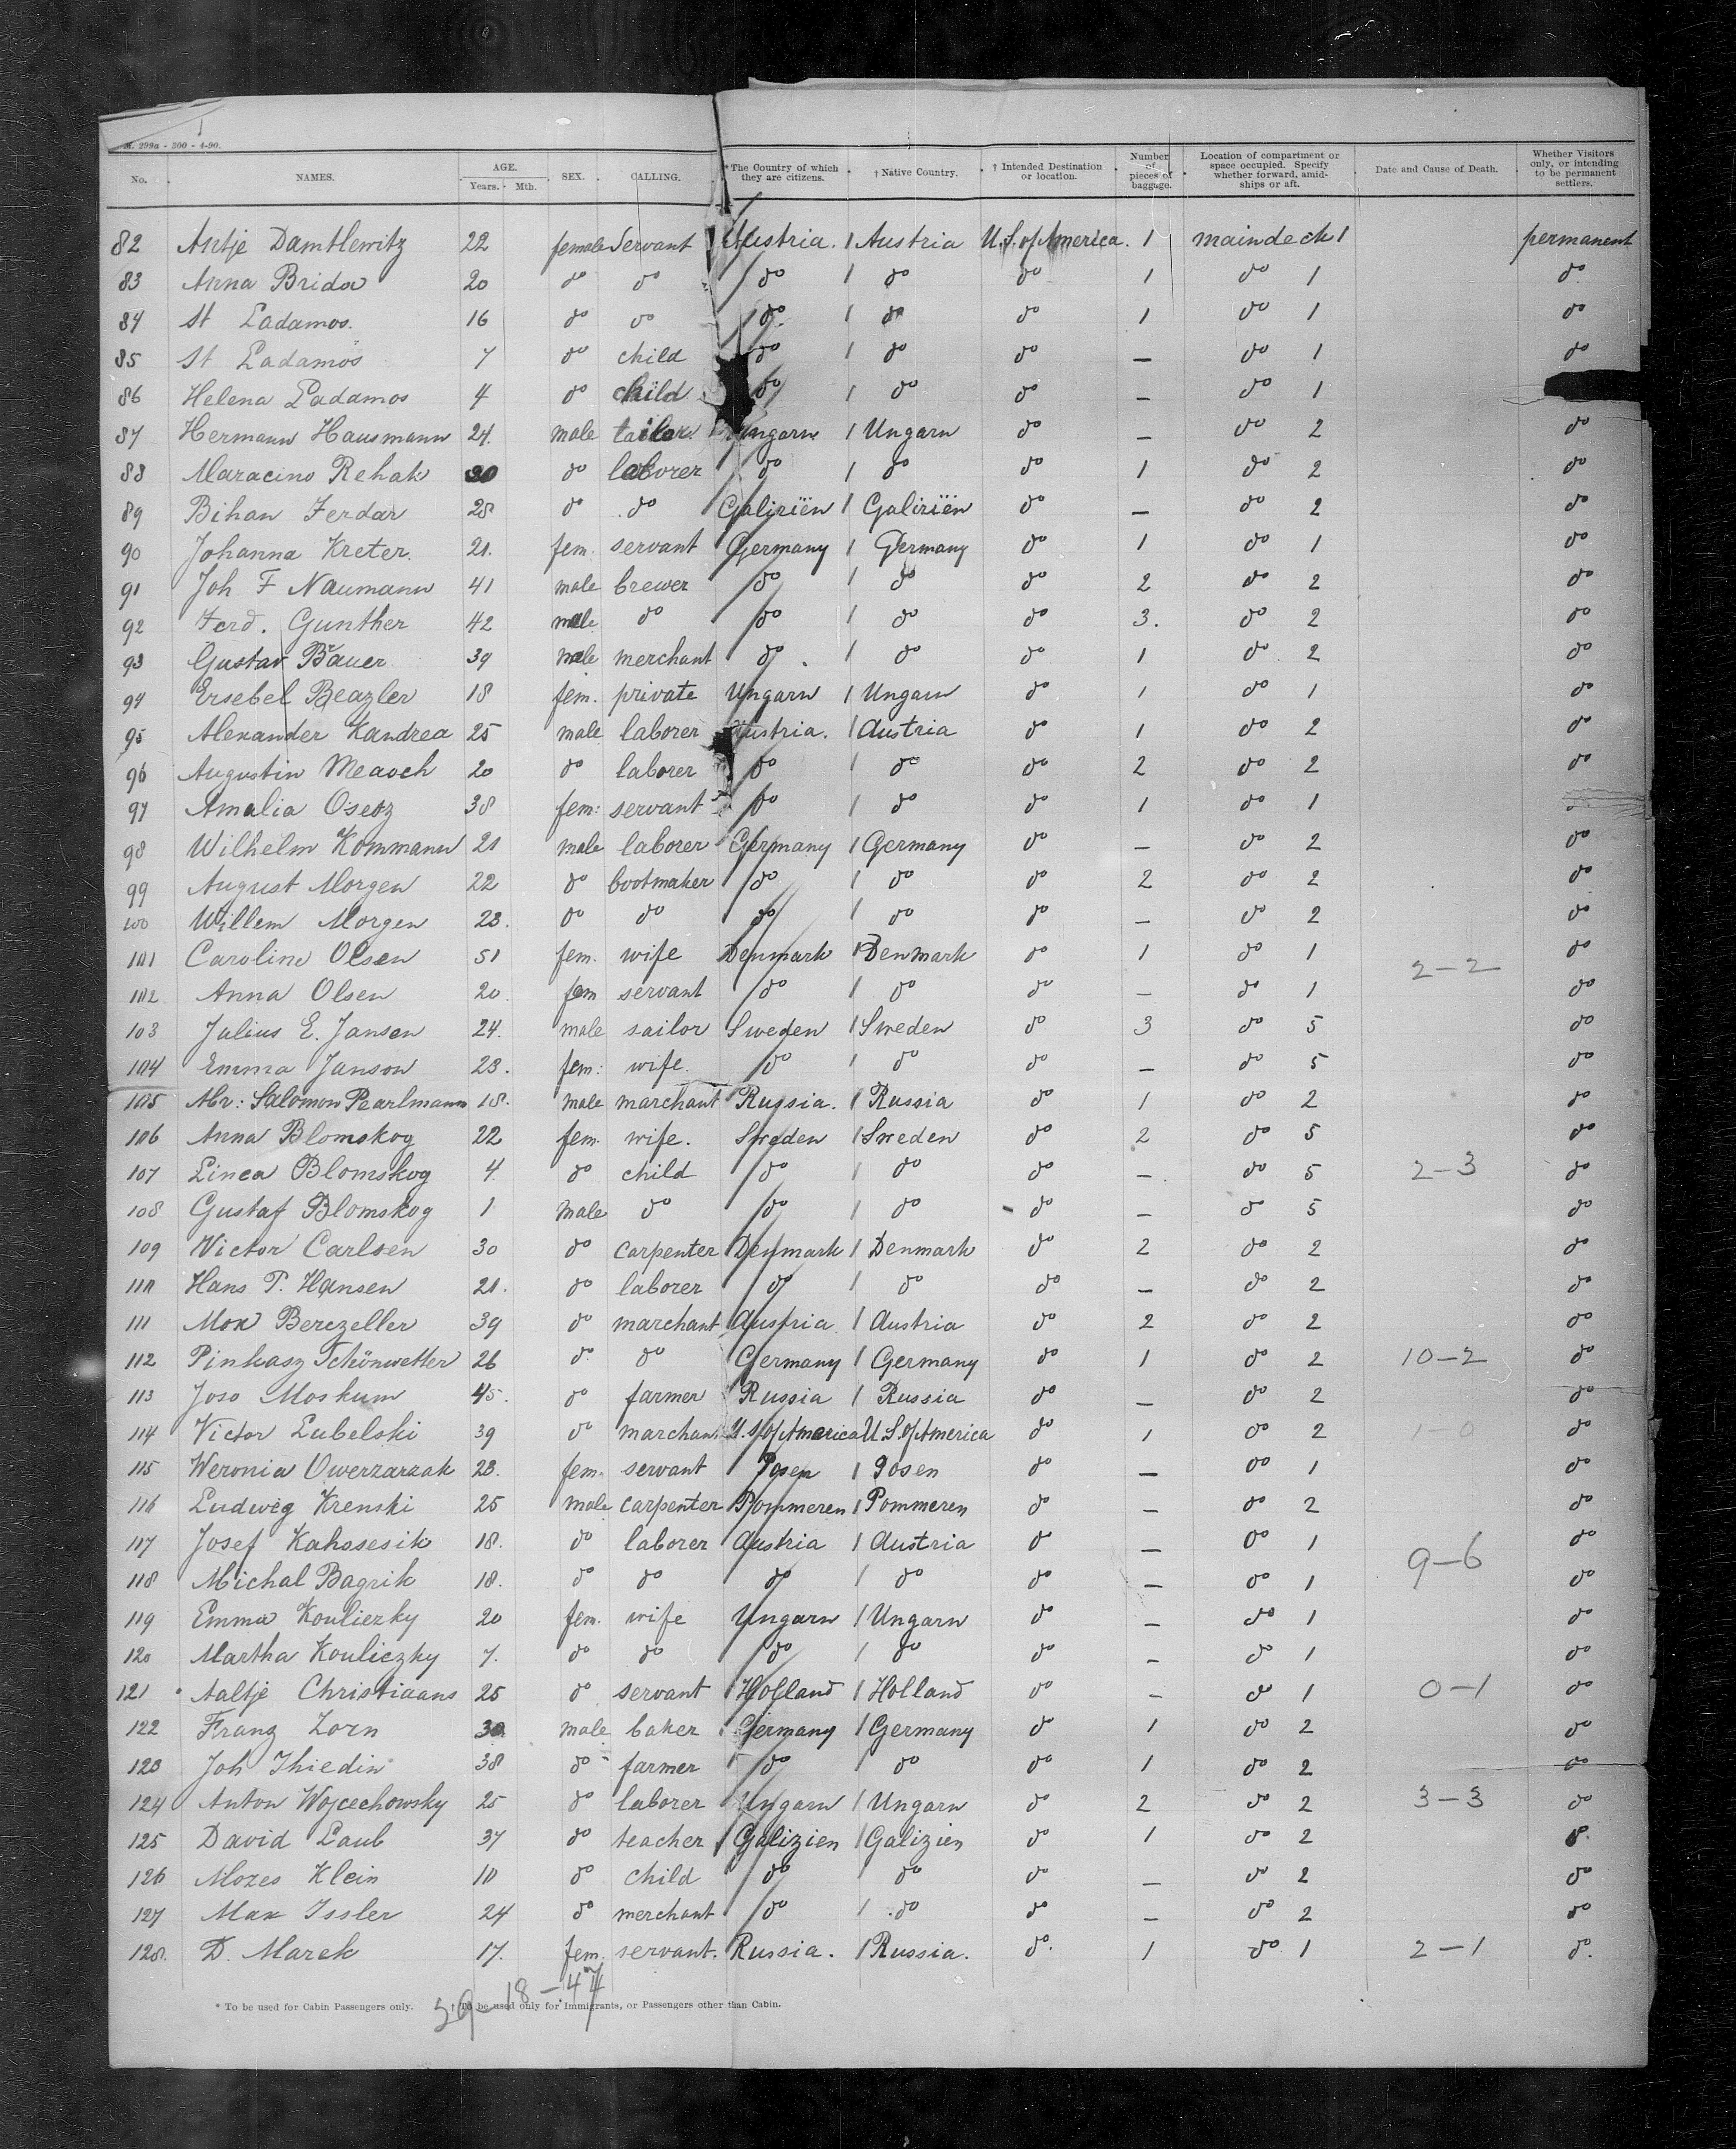 M. 299a - 300 - 4-90.
No. NAMES. AGE. Years. Mth. SEX. CALLING. *The Country of which they are citizens. † Native Country. † Intended Destination or location. Number of pieces of baggage. Location of compartment or space occupied. Specify whether forward, amidships or aft. Date and Cause of Death. Whether Visitors only, or intending to be permanent settlers.
82 Antje Damtlewitz 22 female Servant Austria. / Austria U.S. of America. 1 maindeck 1 permanent
83 Anna Brida 20 do do do / do do 1 do 1 do
84 St Ladamos. 16 do do do / do do 1 do 1 do
85 St Ladamos 7 do child do / do do — do 1 do
86 Helena Ladamos 4 do child do / do do — do 1
87 Hermann Hausmann 24. male tailor Ungarn / Ungarn do — do 2 do
88 Maracino Rehak 30 do laborer do / do do 1 do 2 do
89 Bihan Ferdar 28 do do Galiriën / Galiriën do — do 2 do
90 Johanna Kreter. 21. fem. servant Germany / Germany do 1 do 1 do
91 Joh F Naumann 41 male brewer do / do do 2 do 2 do
92 Ferd. Gunther 42 male do do / do do 3. do 2 do
93 Gustav Bauer 39 male merchant do / do do 1 do 2 do
94 Ersebel Beazler 18 fem. private Ungarn / Ungarn do 1 do 1 do
95 Alexander Kandrea 25 male laborer Austria. / Austria do 1 do 2 do
96 Augustin Meaoch 20 do laborer do / do do 2 do 2 do
97 Amalia Oseoz 38 fem: servant do / do do 1 do 1
98 Wilhelm Kommann 21 male laborer Germany / Germany do — do 2 do
99 August Morgen 22 do bootmaker do / do do 2 do 2 do
100 Willem Morgen 23. do do do / do do — do 2 do
101 Caroline Olsen 51 fem. wife Denmark / Denmark do 1 do 1 2-2 do
102 Anna Olsen 20 fem servant do / do do — do 1 do
103 Julius E. Jansen 24. male sailor Sweden / Sweden do 3 do 5 do
104 Emma Janson 23. fem: wife. do / do do — do 5 do
105 Mr: Salomon Pearlmann 18. male marchant Russia. / Russia do 1 do 2 do
106 Anna Blomskog 22 fem. wife. Sweden / Sweden do 2 do 5 do
107 Linea Blomskog 4 do child do / do do — do 5 2-3 do
108 Gustaf Blomskog 1 male do do / do do — do 5 do
109 Victor Carlsen 30 do carpenter Denmark / Denmark do 2 do 2 do
110 Hans P. Hansen 21. do laborer do / do do — do 2 do
111 Max Berezeller 39 do marchant Austria / Austria do 2 do 2 do
112 Pinkasz Schönwetter 26 do do Germany / Germany do 1 do 2 10-2 do
113 Joso Moskum 45. do farmer Russia / Russia do — do 2 do
114 Victor Lubelski 39 do marchant U.S. of America U.S. of America do 1 do 2 1-0 do
115 Weronia Owerzarzak 23. fem. servant Posen / Posen do — do 1 do
116 Ludwig Krenski 25 male carpenter Pommeren / Pommeren do — do 2 do
117 Josef Kahosesik 18. do laborer Austria / Austria do — do 1 9-6 do
118 Michal Bagrik 18. do do do / do do — do 1 do
119 Emma Kouliczky 20 fem. wife Ungarn / Ungarn do — do 1 do
120 Martha Kouliczky 7. do do do / do do — do 1 do
121 Aaltje Christiaans 25 do servant Holland / Holland do — do 1 0-1 do
122 Franz Zorn 30. male baker Germany / Germany do 1 do 2 do
123 Joh Thiedin 38 do farmer do / do do 1 do 2 do
124 Anton Wojcechowsky 25 do laborer Ungarn / Ungarn do 2 do 2 3-3 do
125 David Laub 37 do teacher Galizien / Galizien do 1 do 2 do
126 Mozes Klein 10 do child do / do do — do 2 do
127 Max Issler 24 do merchant do / do do — do 2 do
128. D. Marek 17. fem. servant. Russia. / Russia. do. 1 do 1 2-1 do.
18-44
* To be used for Cabin Passengers only. † To be used only for Immigrants, or Passengers other than Cabin.